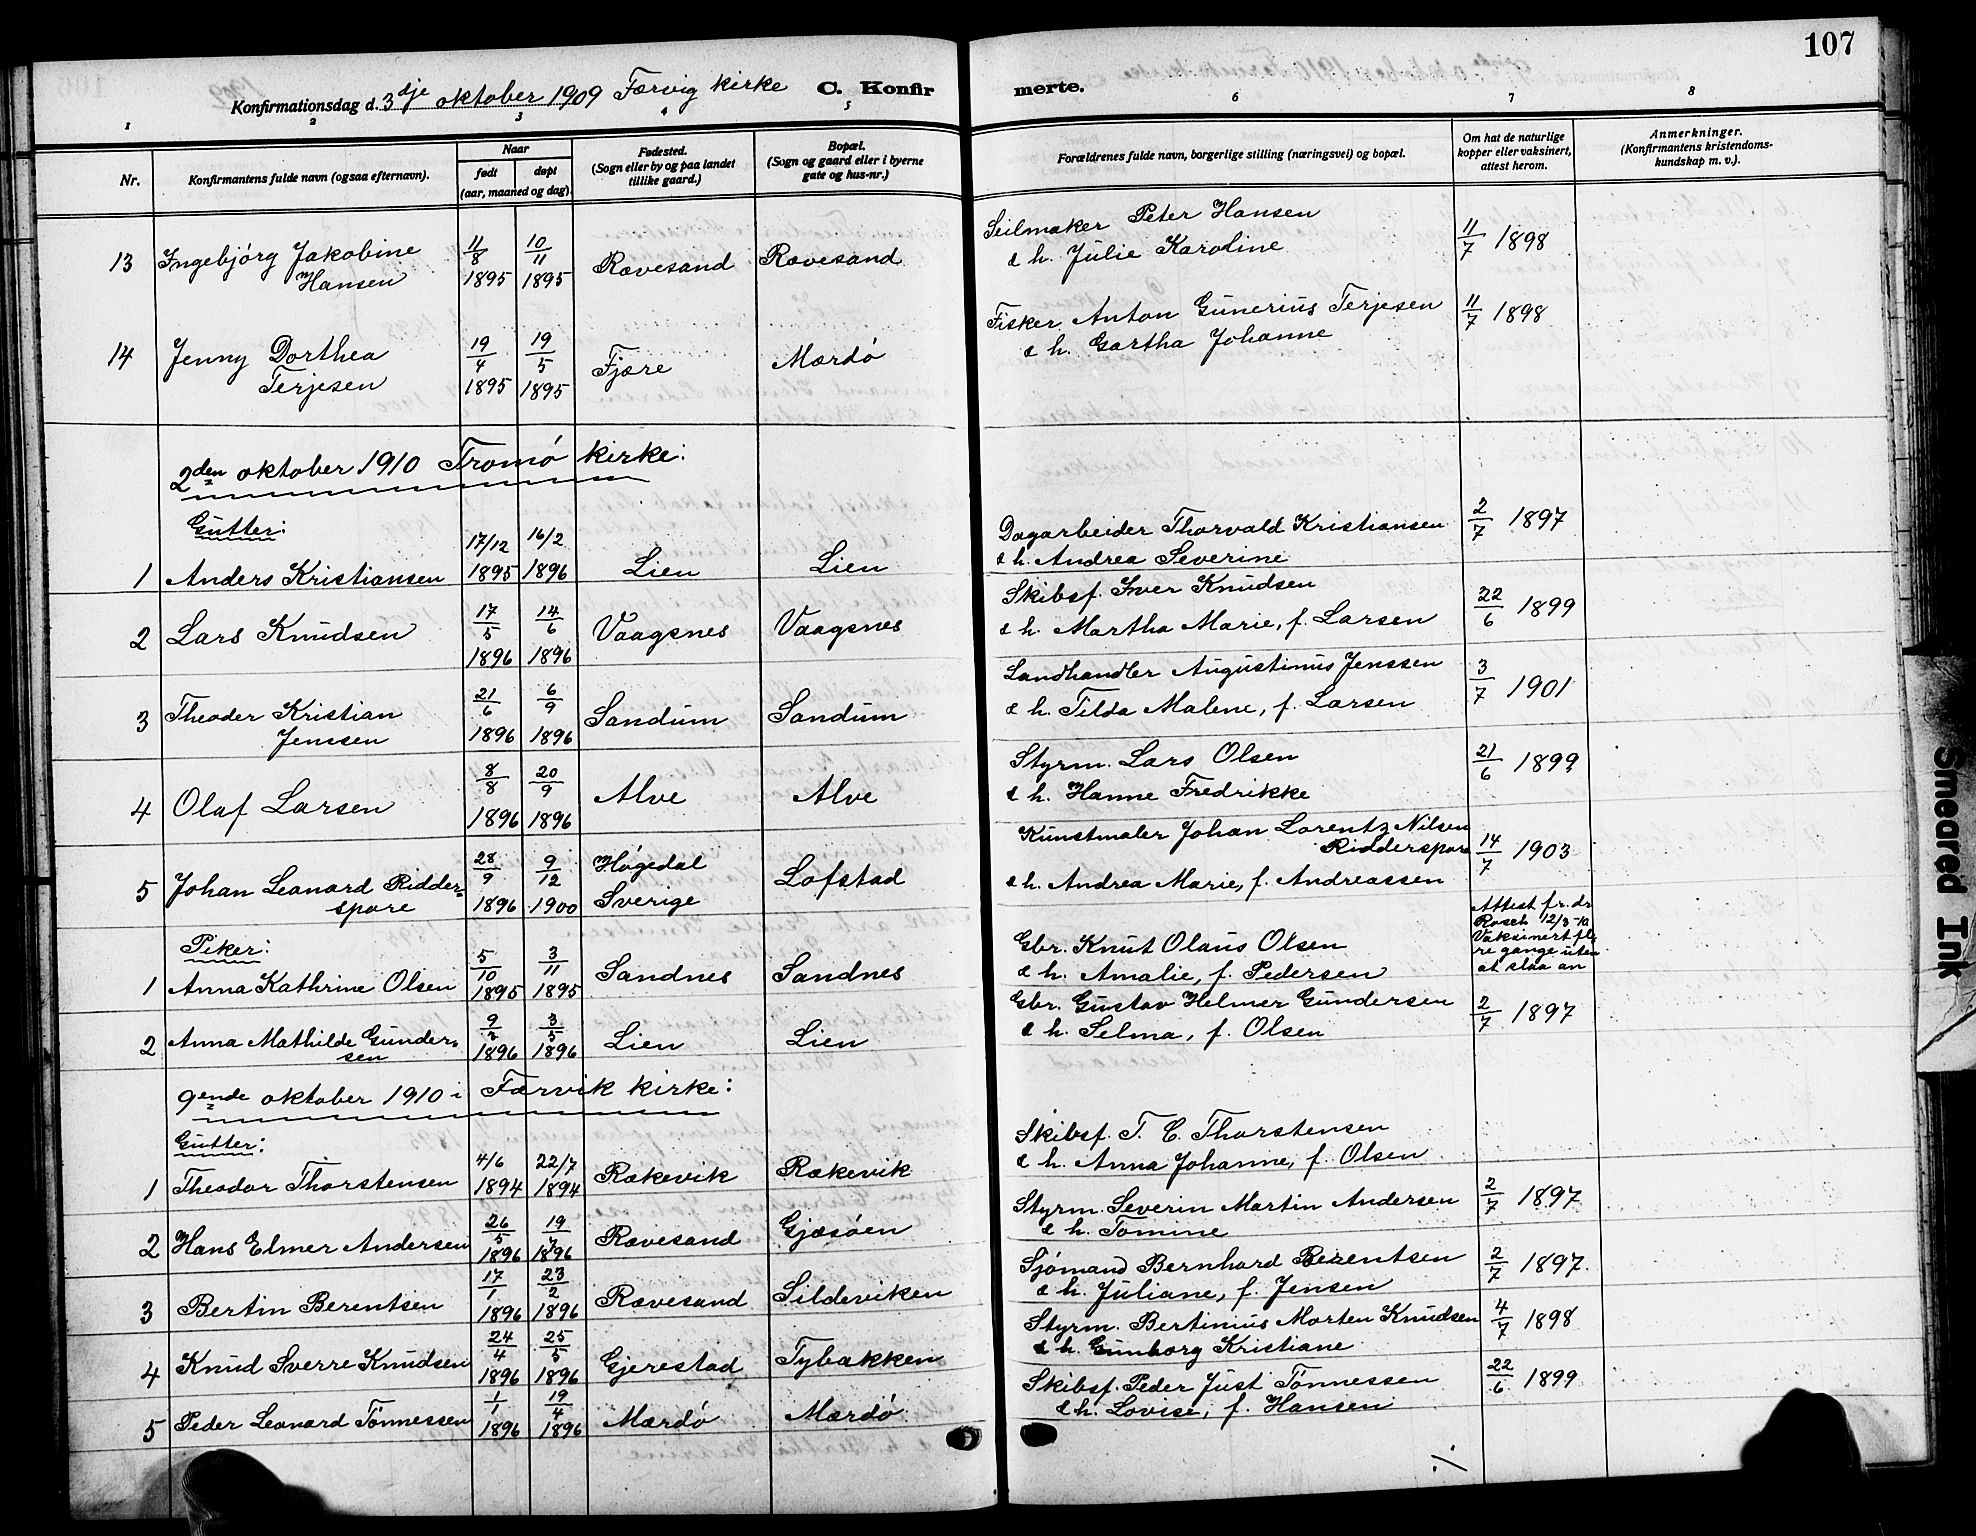 107
Konfirmationsdag d. 3dje oktober 1909 Færvig kirke C. Konfir merte.
1 2 3 4 5 6 7 8
Nr.
Konfirmantens fulde navn (ogsaa efternavn).
Naar
født
døpt
(aar, maaned og dag).
Fødested.
(Sogn eller by og paa landet
tillike gaard.)
Bopæl.
(Sogn og gaard eller i byerne
gate og hus-nr.)
Forældrenes fulde navn, borgerlige stilling (næringsvei) og bopæl.
Om hat de naturlige
kopper eller vaksinert,
attest herom.
Anmerkninger.
(Konfirmantens kristendoms-
kundskap m. v.).
13 Ingebjörg Jakobine Hansen 11/8 1895 10/11 1895 Rævesand Rævesand Seilmaker Peter Hansen
& h. Julie Karoline 11/7 1898
14 Jenny Dorthea Terjesen 19/4 1895 19/5 1895 Fjære Mærdö Fisker Anton Gunerius Terjesen
& h. Gartha Johanne 11/7 1898
2den oktober 1910 Tromö kirke:
Gutter:
1 Anders Kristiansen 17/12 1895 16/2 1896 Lien Lien Dagarbeider Thorvald Kristiansen
& h. Andrea Severine 2/7 1897
2 Lars Knudsen 17/5 1896 14/6 1896 Vaagsnes Vaagsnes Skibsf. Iver Knudsen
& h. Martha Marie, f. Larsen 22/6 1899
3 Theoder Kristian Jenssen 21/6 1896 6/9 1896 Sandum Sandum Landhandler Augustinus Jenssen
& h. Tilda Malene, f. Larsen 3/7 1901
4 Olaf Larsen 8/8 1896 20/9 1896 Alve Alve Styrm. Lars Olsen
& h. Hanne Fredrikke 21/6 1899
5 Johan Leonard Ridder=
spore 28/9 1896 9/12 1900 Högedal
Sverige Lofstad Kunstmaler Johan Lorentz Nilsen
Ridderspore
& h. Andrea Marie, f. Andreassen 14/7 1903
Piker:
1 Anna Kathrine Olsen 5/10 1895 3/11 1895 Sandnes Sandnes Gbr. Knut Olaus Olsen
& h. Amalie, f. Pedersen
Attest fr. dr.
Rosch 12/3-10
Vaksinert fle
re gange uten
at slaa an
2 Anna Mathilde Gunder,
sen 9/ 1896 3/5 1896 Lien Lien Gbr. Gustav Helmer Gundersen
& h. Selma, f. Olsen 2/7 1897
9ende oktober 1910 i Færvik kirke:
Gutter:
1 Theodor Thorstensen 4/6 1894 22/7 1894 Rækevik Rækevik Skibsf. T. C. Thorstensen
& h. Anna Johanne, f. Olsen
2 Hans Elmer Andersen 26/5 1896 19/7 1896 Rævesand Gjæsöen Styrm. Severin Martin Andersen
& h. Tomine 2/7 1897
3 Bertin Berentsen 17/1 1896 23/2 1896 Rævesand Sildeviken Sjömand Bernhard Berentsen
& h. Juliane, f. Jensen 2/7 1897
4 Knud Sverre Knudsen 24/4 1896 25/5 1896 Gjerestad Tybakken Styrm. Bertinius Morten Knudsen
& h. Gunborg Kristiane 4/7 1898
5 Peder Leonard Tönnessen 1/1 1896 19/4 1896 Mærdö Mærdö Skibsf. Peder Just Tönnessen
& h. Lovise, f. Hansen 22/6 1899
Smeared Ink